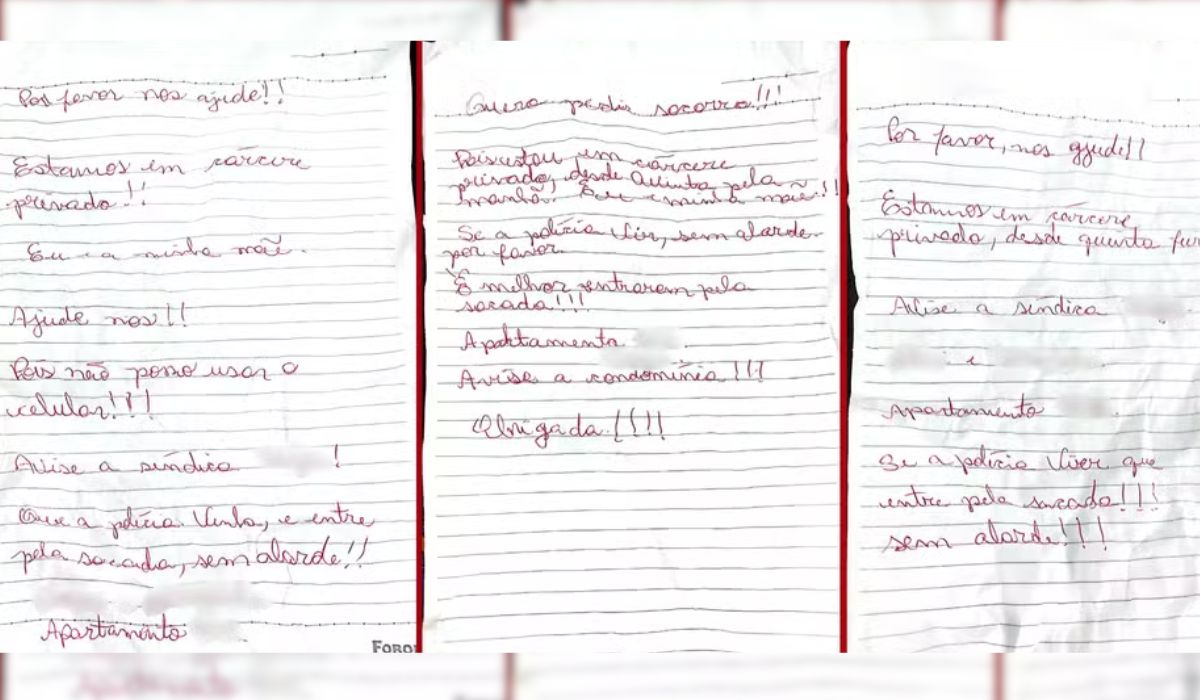 Por favor nos ajude!!
Estamos em cárcere
privado!!
Eu e a minha mãe.
Ajude nos!!
Pois não posso usar o
celular!!!
Avise a síndica !
Que a polícia Venha, e entre
pela sacada, sem alarde!!
Apartamento
Quero pedir socorro!!!
Pois estou em cárcere
privado, desde Quinta pela
manhã. Eu e minha mãe!!
Se a polícia Vir, sem alarde
por favor.
É melhor entrarem pela
sacada!!!
Apartamento
Avise a condomínia!!!
Obrigada!!!!
Por favor, nos ajude!!
Estamos em cárcere
privado, desde quinta
Avise a síndica
e
Apartamento
Se a polícia Vier que
entre pela sacada!!!
sem alarde!!!